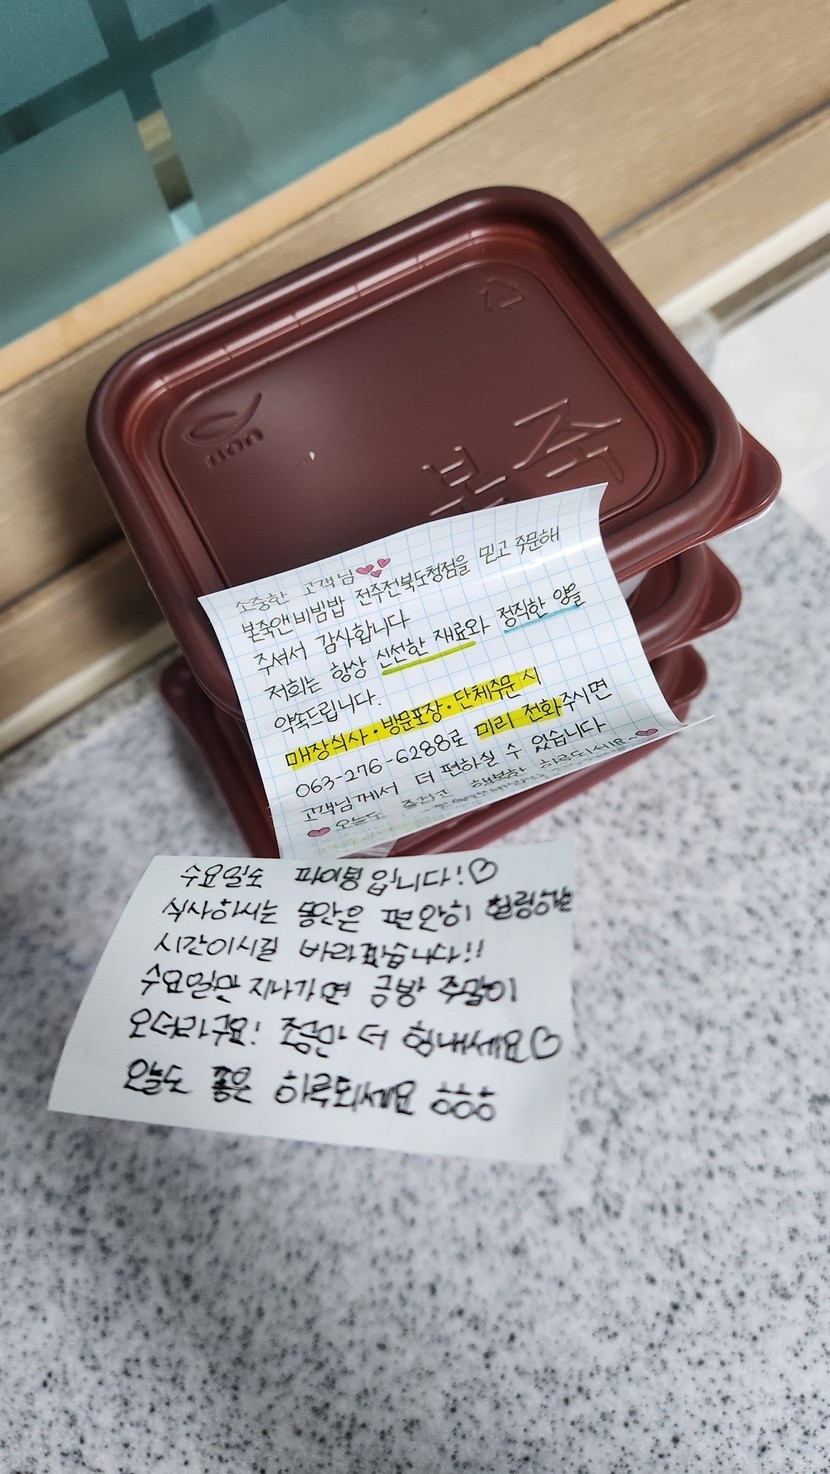 죽
본
소중한 고객님
본죽앤비빔밥 전주전북도청점을 믿고 주문해
주셔서 감사합니다
저희는 항상 신선한 재료와 정직한 양을
약속드립니다.
매장식사·방문포장·단체주문 시
063-276-6288로 미리 전화주시면
고객님께서 더 편하실 수 있습니다
오늘도 즐겁고 행복한 하루되세요
수요일도 파이팅입니다!♡
식사하시는 동안은 편안히 힐링하는
시간이시길 바라겠습니다!!
수요일만 지나가면 금방 주말이
오더라구요! 조금만 더 힘내세요♡
오늘도 좋은 하루되세요 ㅎㅎㅎ